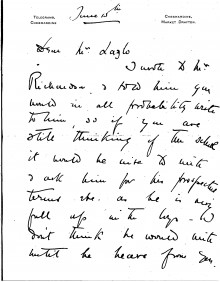 TELEGRAMS,
CHESWARDINE.
June 10th
CHESWARDINE,
MARKET DRAYTON.
Dear Mr. Laszlo
I wrote to Mr
Richardson & told him you
would in all probability write
to him, so if you are
still thinking of the school
it would be wise to write
& ask him for his prospectus
terms etc. as he is very
full up in the
don't think he would write
until he hears from you